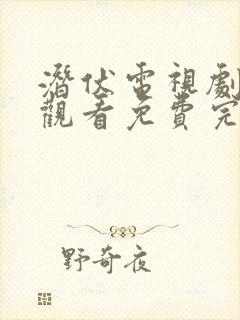 潛伏電視劇
觀看免費完
野奇夜